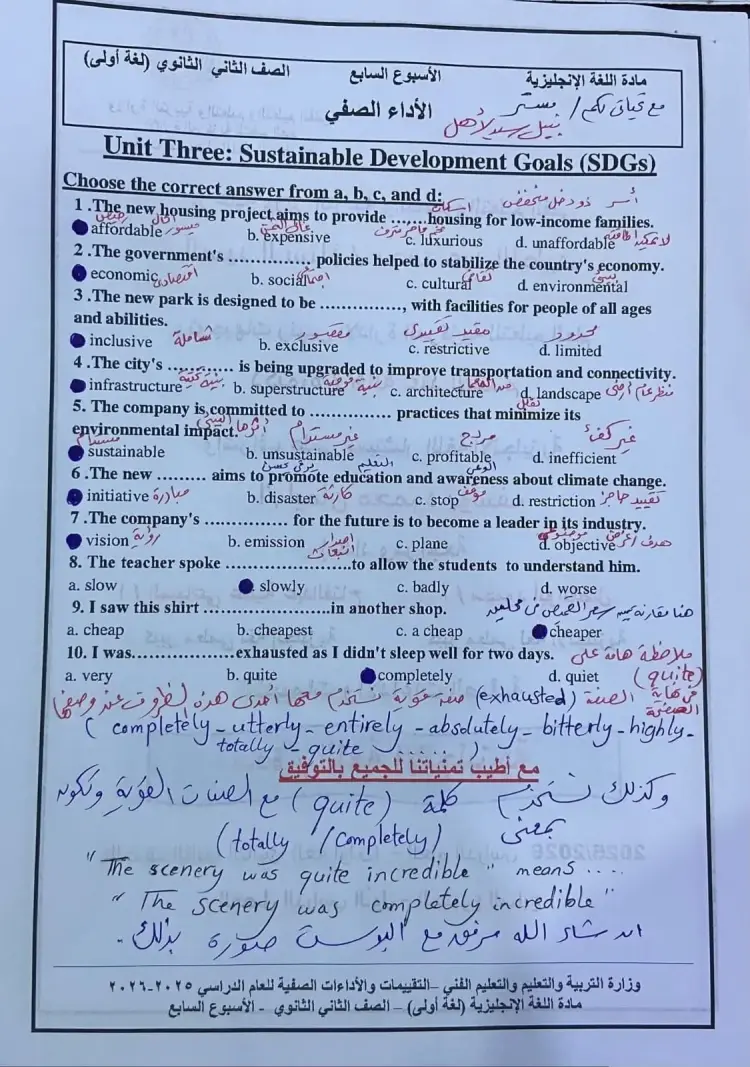 مادة اللغة الإنجليزية الأسبوع السابع الصف الثاني الثانوي (لغة أولى)
مع تحياتي لكم / مستر
الأداء الصفي
نبيل سيد الأهل
Unit Three: Sustainable Development Goals (SDGs)
Choose the correct answer from a, b, c, and d:
أسر ذو دخل منخفض
1 .The new housing project aims to provide ........housing for low-income families.
affordable b. expensive c. luxurious d. unaffordable
2 .The government's ............. policies helped to stabilize the country's economy.
economic اقتصادى b. social c. cultural d. environmental
3 .The new park is designed to be ............., with facilities for people of all ages
and abilities.
inclusive شاملة b. exclusive مقصور c. restrictive مقيد تقييدى d. limited محدود
4 .The city's .......... is being upgraded to improve transportation and connectivity.
infrastructure بنية تحتية b. superstructure بنية فوقية c. architecture d. landscape
5. The company is committed to ............. practices that minimize its
environmental impact.
sustainable مستدام b. unsustainable غير مستدام c. profitable مربح d. inefficient غير كفء
6 .The new ......... aims to promote education and awareness about climate change.
initiative مبادرة b. disaster كارثة c. stop d. restriction تقييد حاجز
7 .The company's .............. for the future is to become a leader in its industry.
vision رؤية b. emission c. plane d. objective
8. The teacher spoke .....................to allow the students to understand him.
a. slow slowly c. badly d. worse
9. I saw this shirt .....................in another shop.
a. cheap b. cheapest c. a cheap cheaper
10. I was.................exhausted as I didn't sleep well for two days.
a. very b. quite completely d. quiet
ملاحظة هامة على (quite)
(exhausted) صفة قوية
( completely - utterly - entirely - absolutely - bitterly - highly -
totally - quite ........ )
مع أطيب تمنياتنا للجميع بالتوفيق
وكذلك نستخدم كلمة (quite) مع الصفات القوية وتكون
بمعنى (totally / completely)
"The scenery was quite incredible" means ....
"The scenery was completely incredible"
ان شاء الله مرفق مع البوست صورة بذلك.
وزارة التربية والتعليم والتعليم الفني –التقييمات والأداءات الصفية للعام الدراسي ٢٠٢٥-٢٠٢٦
مادة اللغة الإنجليزية (لغة أولى) – الصف الثاني الثانوي - الأسبوع السابع